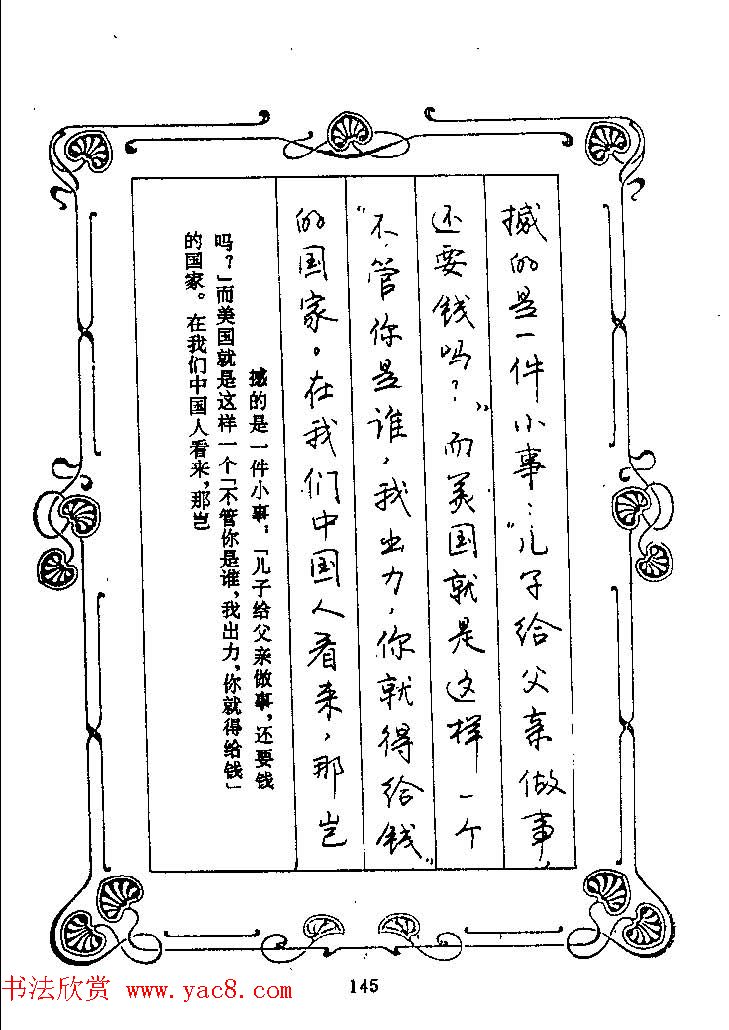 撼的是一件小事:“儿子给父亲做事,
还要钱吗?”而美国就是这样一个
“不管你是谁,我出力,你就得给钱”
的国家。在我们中国人看来,那岂
撼的是一件小事:「儿子给父亲做事,还要钱
吗?」而美国就是这样一个「不管你是谁,我出力,你就得给钱」
的国家。在我们中国人看来,那岂
145
书法欣赏 www.yac8.com